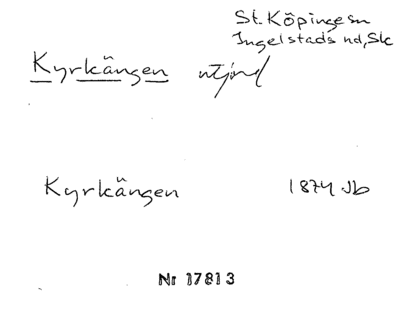 St. Köpinge sn
Ingelstads hd, Sk
Kyrkängen utjord
Kyrkängen 1874 Jb
Nr 17813